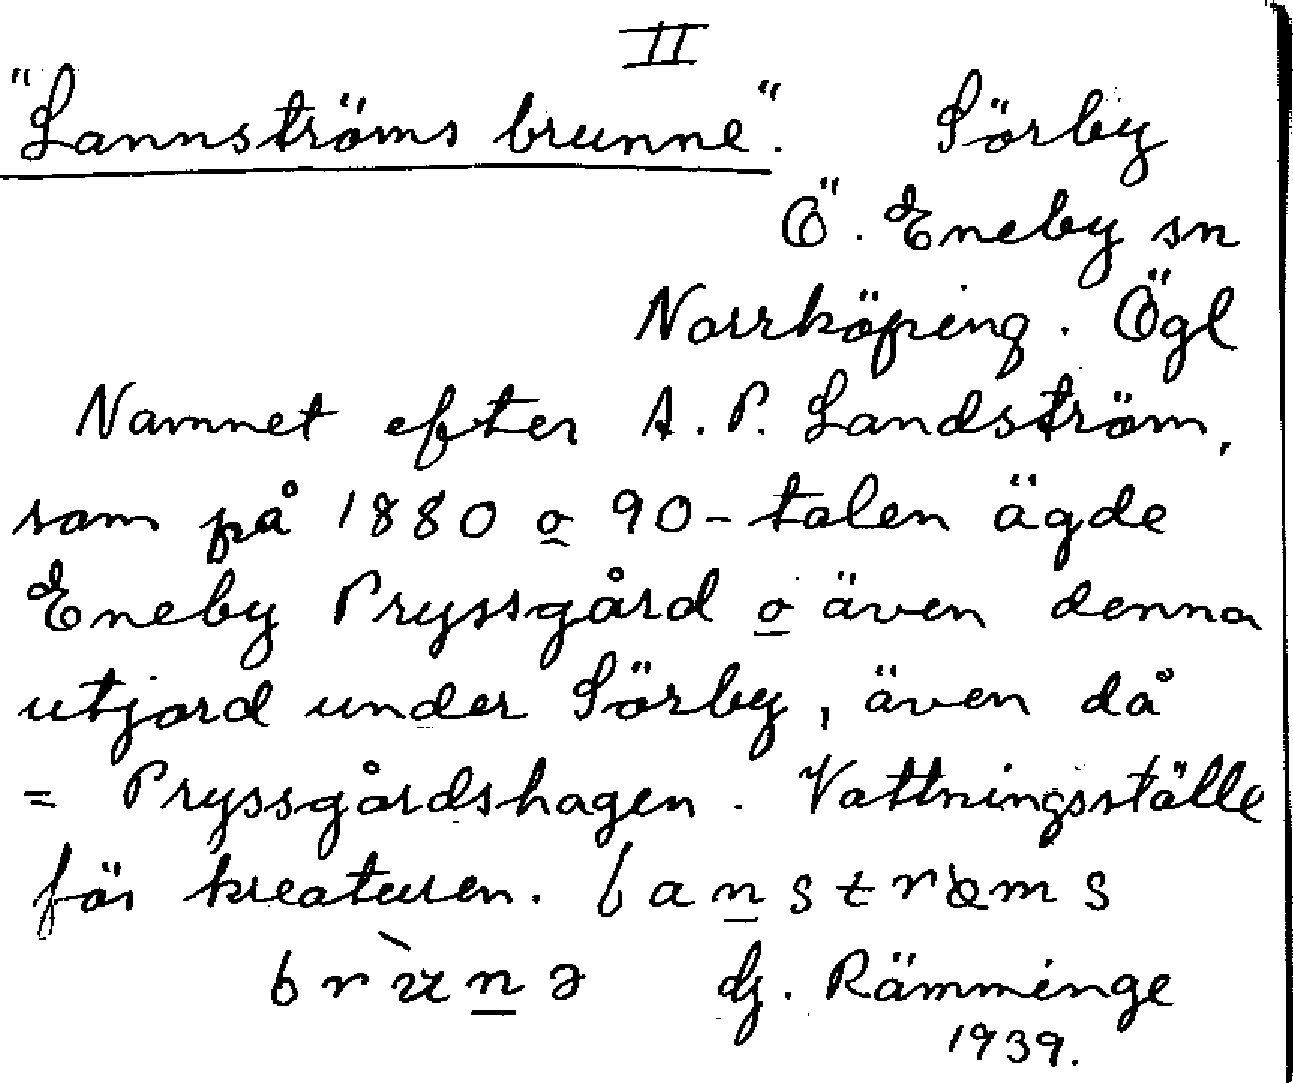 II
"Lannströms brunne". Sörby
Ö. Eneby sn
Norrköping. Ögl
Namnet efter A. P. Landström,
som på 1880 o 90-talen ägde
Eneby Pryssgård o även denna
utjord under Sörby, även då
= Pryssgårdshagen. Vattningsställe
för kreaturen. lanstrœms
brùnə G. Rämminge
1939.